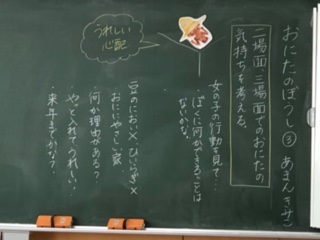 おにたのぼうし ③ あまんきみこ
二場面、三場面でのおにたの
気持ちを考える。
うれしい
心配
女の子の行動を見て…
・ぼくに何ができることは
ないかな。
豆のにおい× ひいらぎ×
・おにいやさしい家。
・何か理由がある？
・やっと入れてうれしい！
・来年までかな？